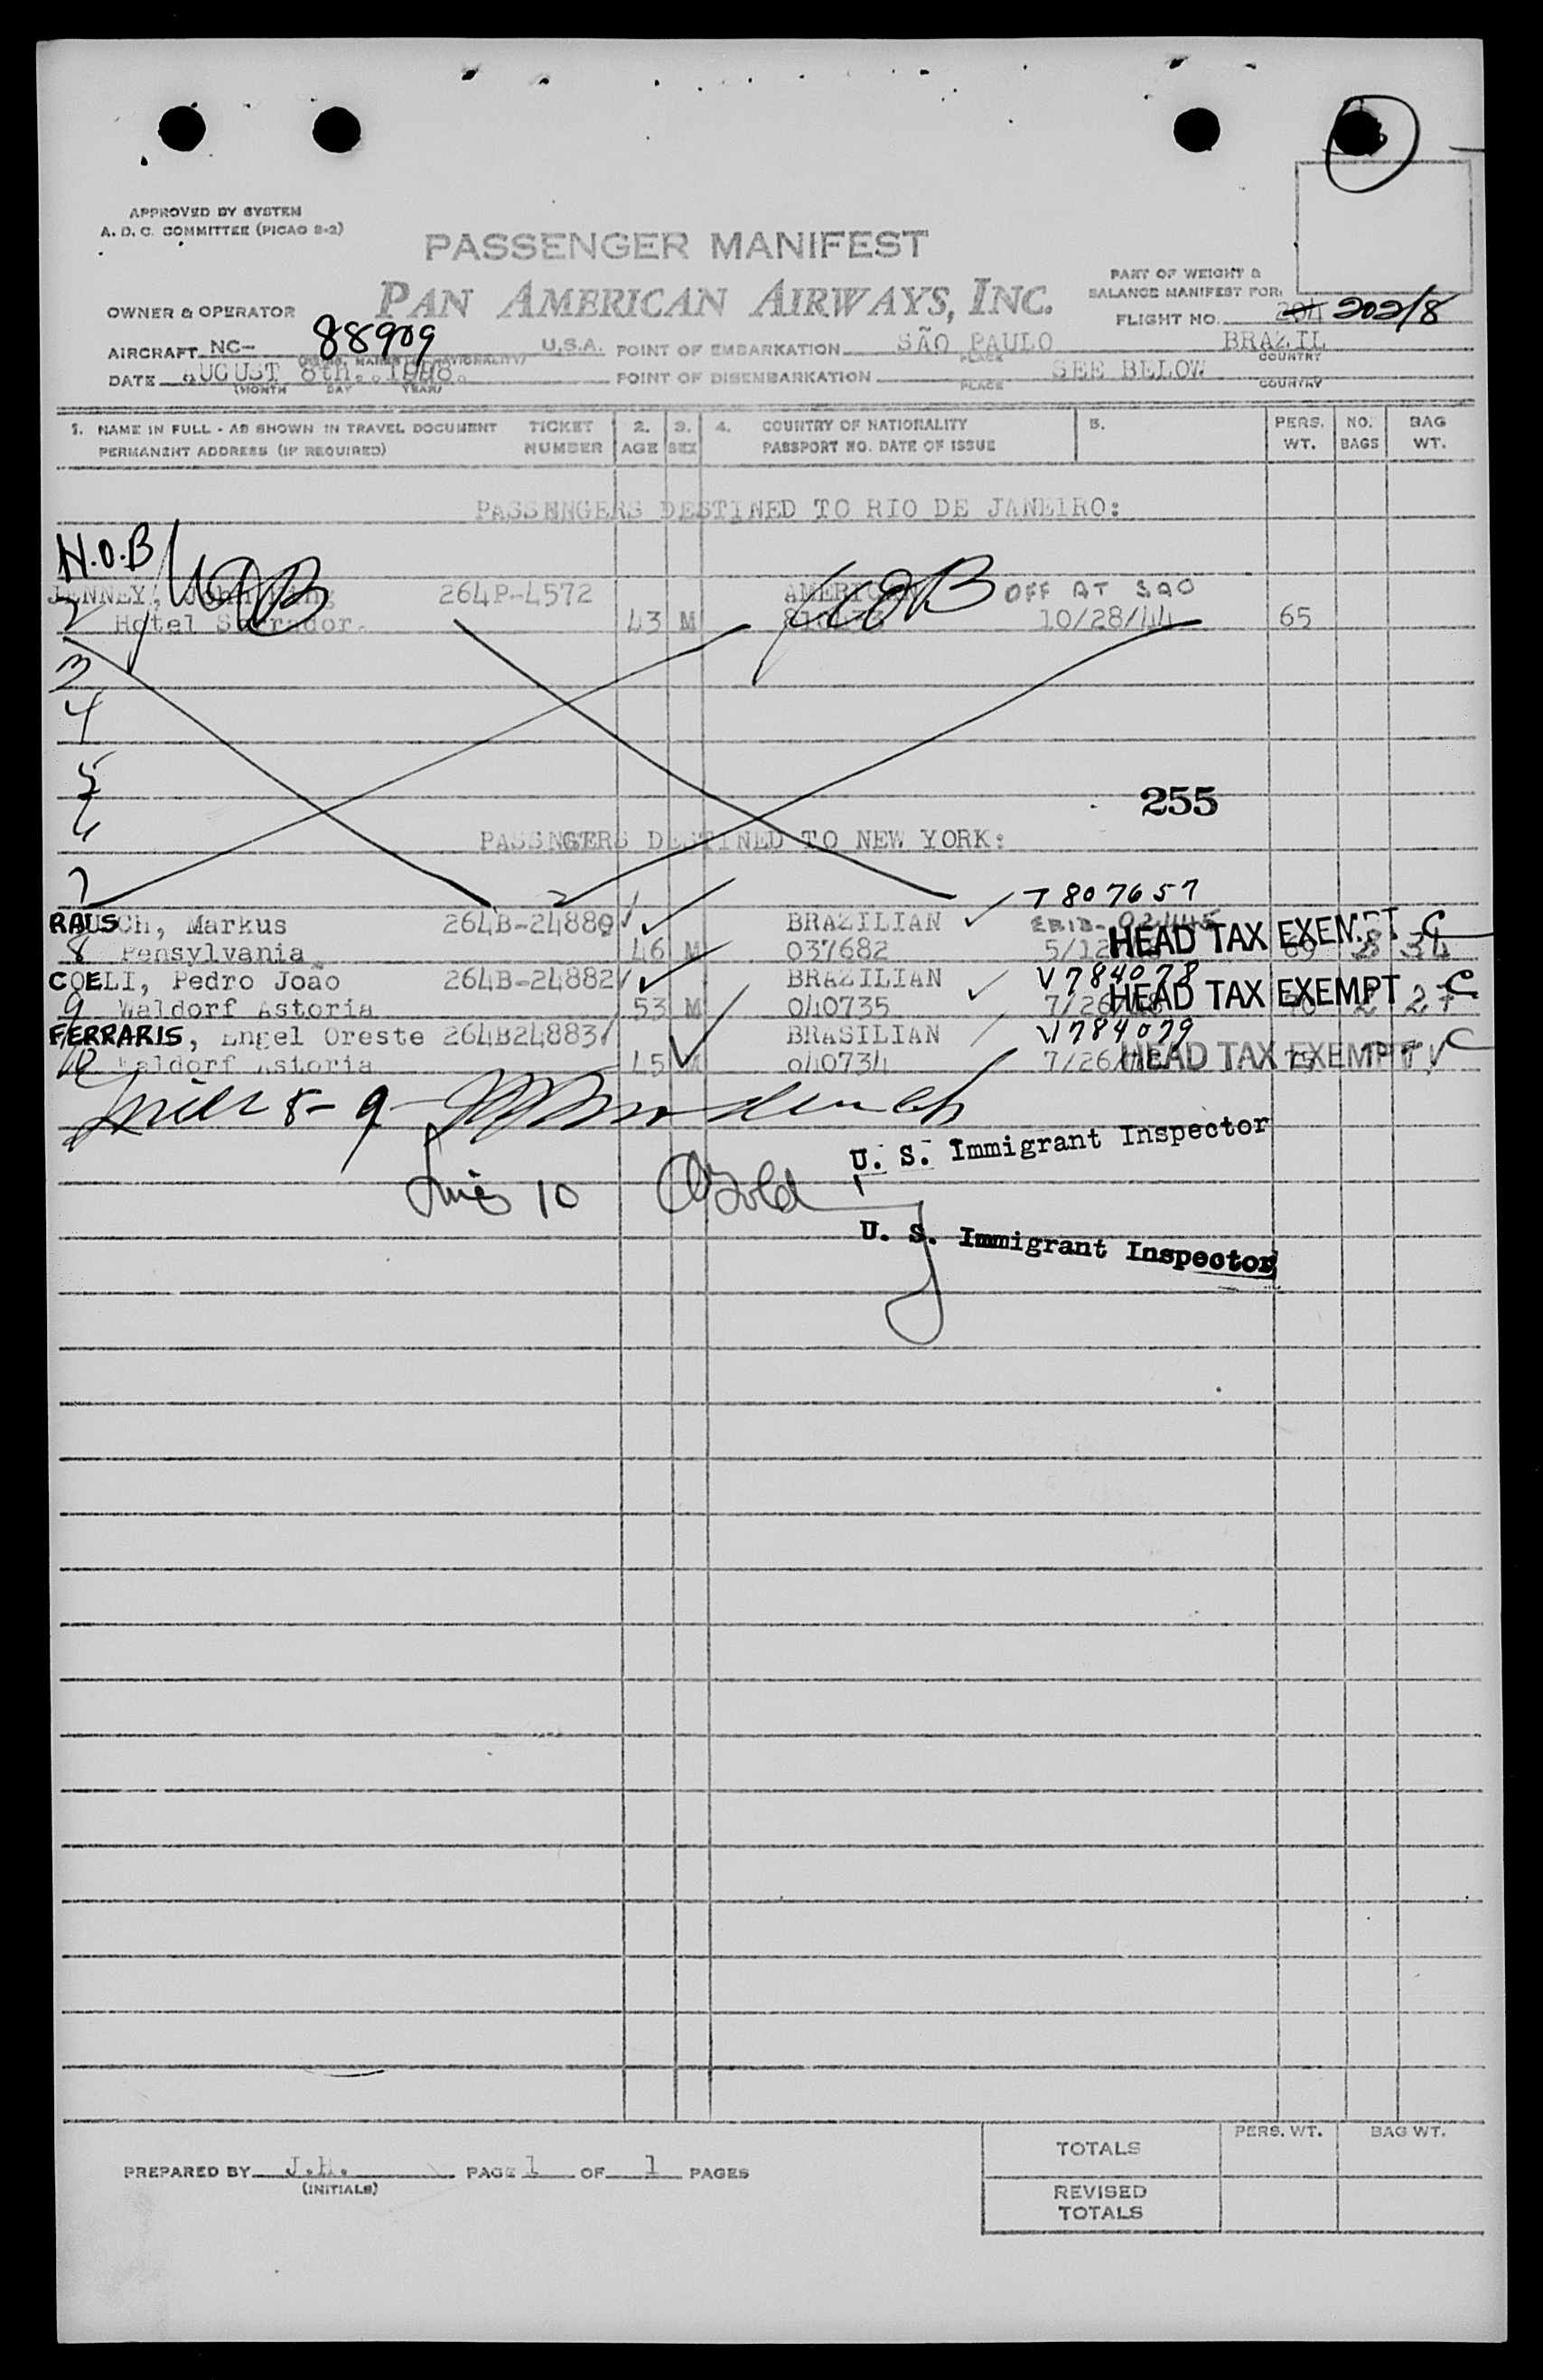 APPROVED BY SYSTEM
A. D. C. COMMITTEE (PICAO 8-2)
PASSENGER MANIFEST
PAN AMERICAN AIRWAYS, INC.
PART OF WEIGHT &
BALANCE MANIFEST FOR:
OWNER & OPERATOR
FLIGHT NO. 204 202/8
AIRCRAFT NC- 88909 U.S.A. POINT OF EMBARKATION SÃO PAULO BRAZIL
PLACE COUNTRY
DATE AUGUST 8th., 1948. POINT OF DISEMBARKATION SEE BELOW
(MONTH DAY YEAR) PLACE COUNTRY
1. NAME IN FULL - AS SHOWN IN TRAVEL DOCUMENT TICKET 2. 3. 4. COUNTRY OF NATIONALITY 5. PERS. NO. BAG
PERMANENT ADDRESS (IF REQUIRED) NUMBER AGE SEX PASSPORT NO. DATE OF ISSUE WT. BAGS WT.
PASSENGERS DESTINED TO RIO DE JANEIRO:
N.O.B
JENNEY, John King 264P-4572 NOB AMERICAN NOB OFF AT SAO
2 Hotel Serrador. 43 M 10/28/44 65
3
4
5
255
6
PASSNGERS DESTINED TO NEW YORK:
7 T 807657
RAUSCH, Markus 264B-24889 BRAZILIAN
8 Pensylvania 46 M 037682 5/12 HEAD TAX EXEMPT 69 34 C
COELI, Pedro João 264B-24882 BRAZILIAN V784078
9 Waldorf Astoria 53 M 040735 7/26 HEAD TAX EXEMPT 2 27 C
FERRARIS, Engel Oreste 264B24883 BRASILIAN V784079
10 Waldorf Astoria 45 M 040734 7/26/48 HEAD TAX EXEMPT 75 C
Lines 8-9
U. S. Immigrant Inspector
Lines 10 Gold
U. S. Immigrant Inspector
TOTALS PERS. WT. BAG WT.
PREPARED BY J.H. PAGE 1 OF 1 PAGES
(INITIALS)
REVISED
TOTALS